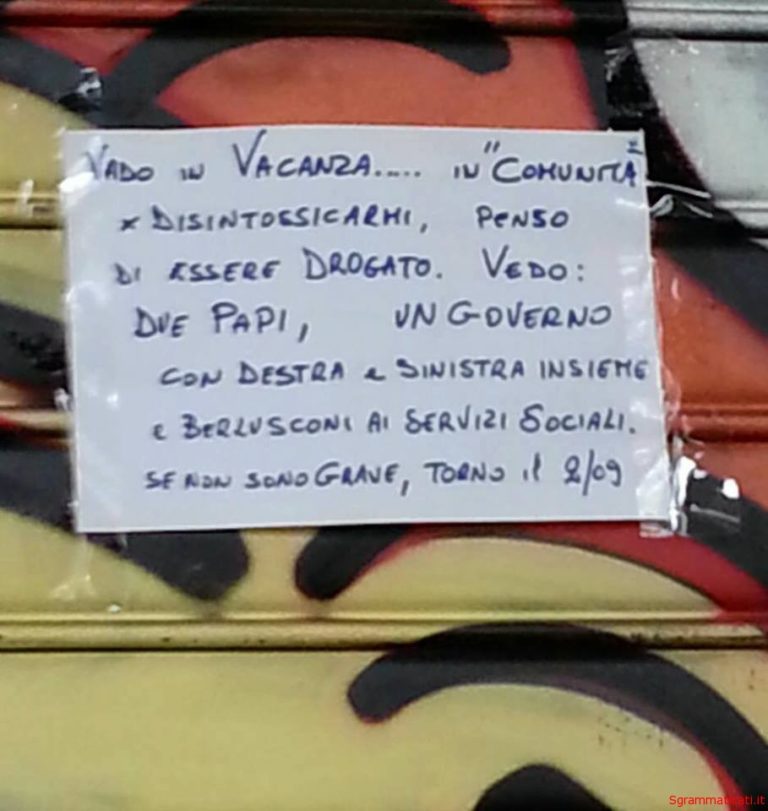 VADO IN VACANZA..... IN "COMUNITÀ"
x DISINTOSSICARMI, PENSO
DI ESSERE DROGATO. VEDO:
DUE PAPI, UN GOVERNO
CON DESTRA e SINISTRA INSIEME
e BERLUSCONI AI SERVIZI SOCIALI.
SE NON SONO GRAVE, TORNO il 2/09
Sgrammaticati.it